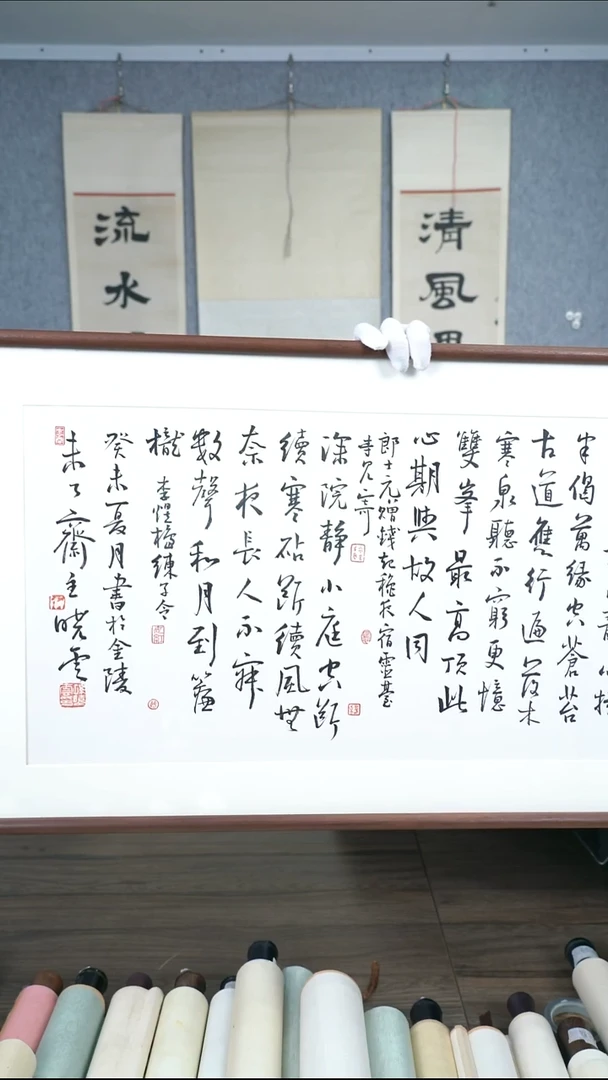 清風
流水
半偈萬緣空蒼苔
古道應行遍落木
寒泉聽不窮更憶
雙峯最高頂此
心期與故人同
郎士元贈錢起穐夜宿靈臺
寺見寄
深院静小庭空斷
續寒砧斷續風無
奈夜長人不寐
數聲和月到簾
櫳
李煜搗練子令
癸未夏月書於金陵
未了齋主晓雲